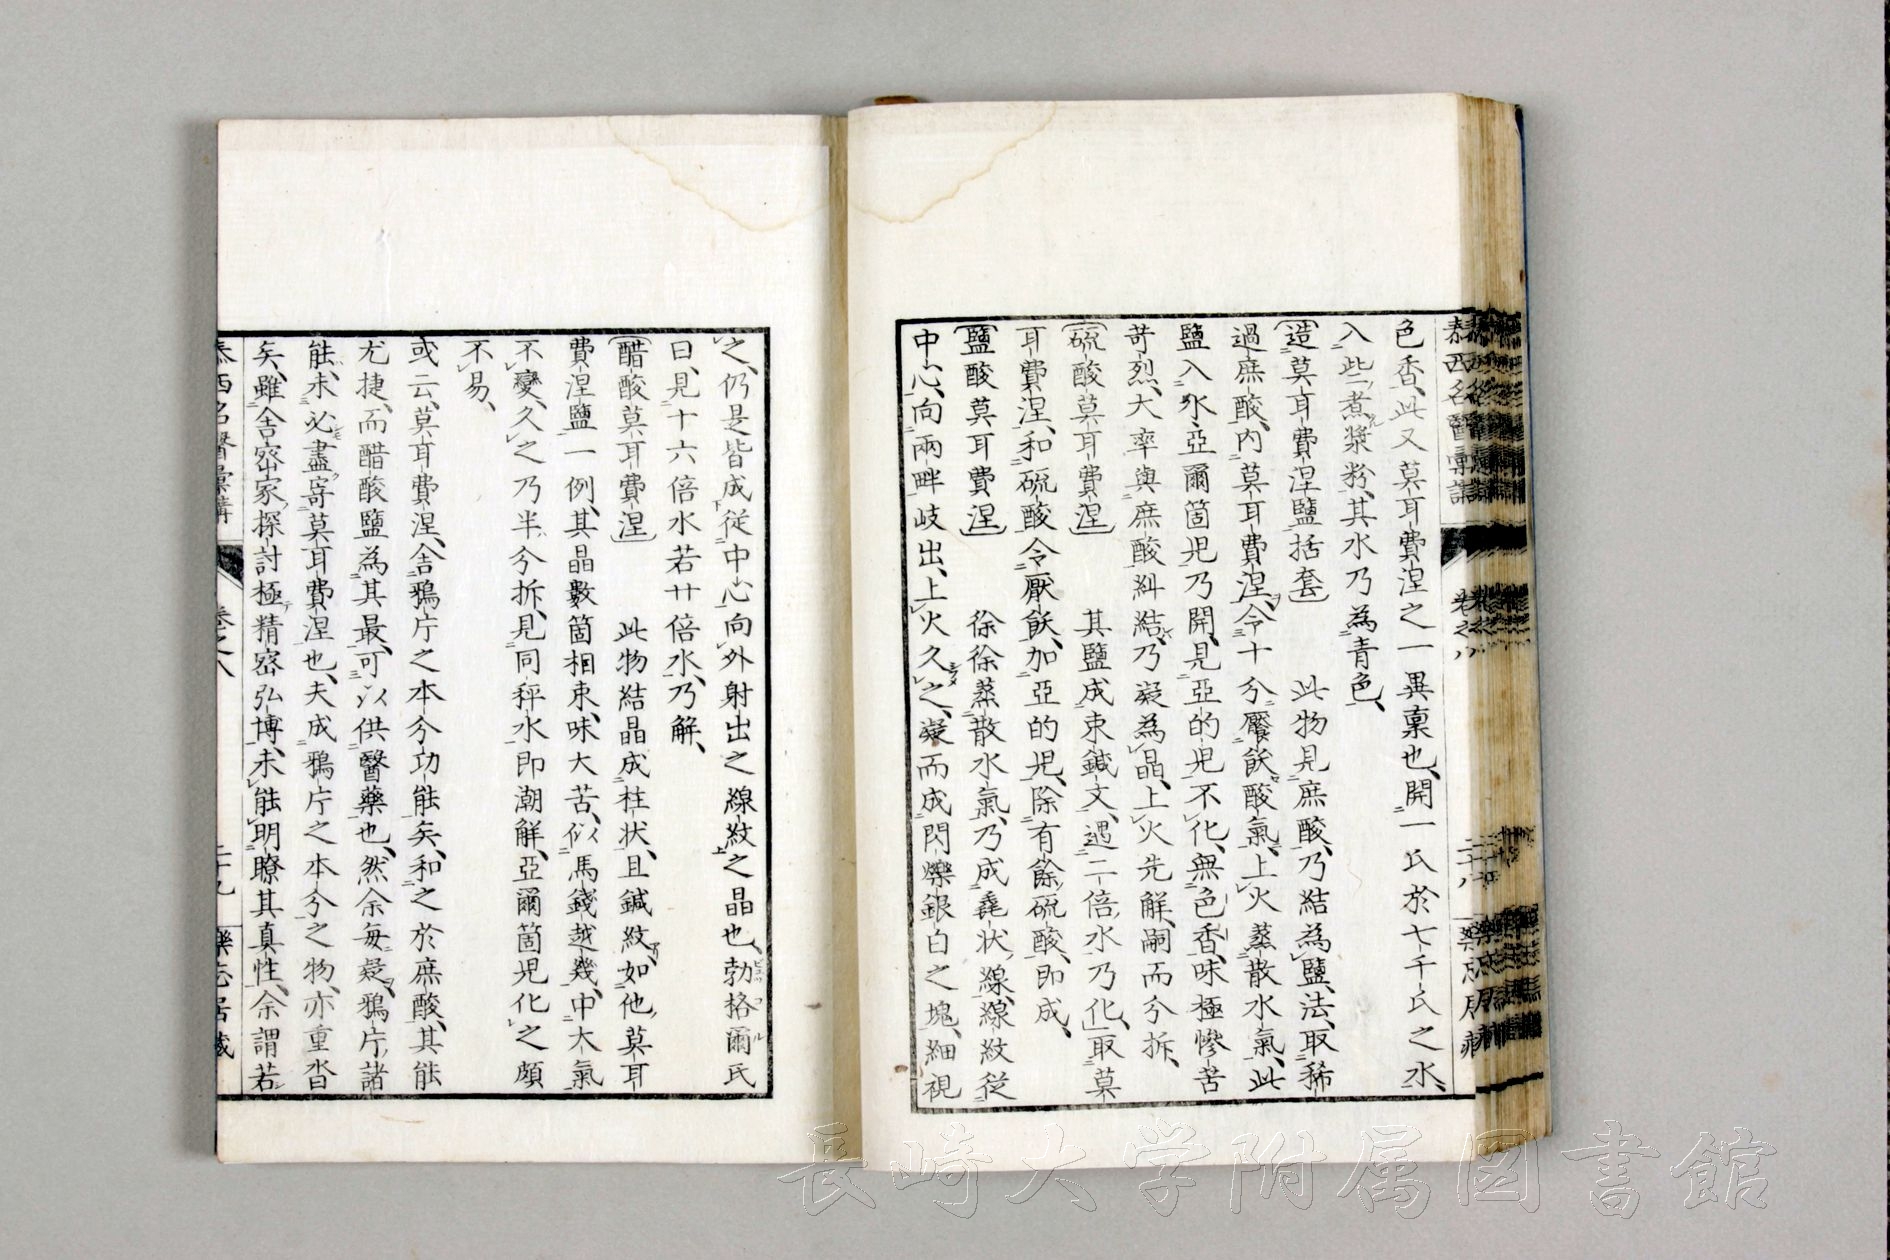 泰西名醫彙講
卷之八
二十八
色香、此又莫耳費涅之一異稟也、開一氏於七千氏之水、
入些煮漿粉、其水乃為青色、
造莫耳費涅鹽括套 此物見庶酸、乃結為鹽、法、取稀
過庶酸、內莫耳費涅、令十分饜飫酸氣、上火蒸散水氣、此
鹽入水、亞爾箇児乃開、見亞的児不化、無色香、味極慘苦
苛烈、大率與庶酸糾結、乃凝為晶、上火先解、嗣而分拆、
硫酸莫耳費涅 其鹽成束鍼文、遇二倍水乃化、取莫
耳費涅、和硫酸令厭飫、加亞的児、除有餘硫酸、即成、
鹽酸莫耳費涅 徐徐蒸散水氣、乃成毳状、線線紋從
中心、向兩畔岐出、上火久之、凝而成閃爍銀白之塊、細視
之、仍是皆成從中心向外射出之線紋之晶也、勃格爾氏
曰、見十六倍水若廿倍水、乃解、
醋酸莫耳費涅 此物結晶成柱状、且鍼紋、如他莫耳
費涅鹽一例、其晶數箇相束、味大苦、似馬錢越幾、中大氣
不變、久之乃半分拆、見同秤水即潮解、亞爾箇児化之頗
不易、
或云、莫耳費涅、含鴉片之本分功能矣、和之於庶酸、其能
尤捷、而醋酸鹽為其最、可以供醫藥也、然余每疑、鴉片諸
能、未必盡寄莫耳費涅也、夫成鴉片之本分之物、亦重沓
矣、雖舎密家、探討極精密弘博、未能明瞭其真性、余謂若
泰西名醫彙講
卷之八
二十九
長崎大学附属図書館